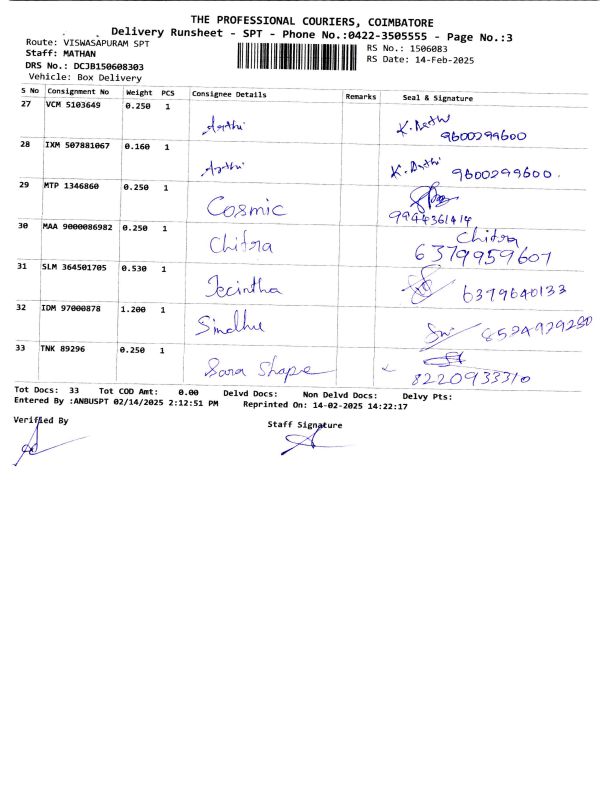 THE PROFESSIONAL COURIERS, COIMBATORE
Delivery Runsheet - SPT - Phone No.:0422-3505555 - Page No.:3
Route: VISWASAPURAM SPT
RS No.: 1506083
Staff: MATHAN
RS Date: 14-Feb-2025
DRS No.: DCJB150608303
Vehicle: Box Delivery
S No Consignment No Weight PCS Consignee Details Remarks Seal & Signature
27 VCM 5103649 0.250 1 Aarthi K. Aarthi
9600299600
28 IXM 507881067 0.160 1 Aarthi K. Aarthi 9600299600.
29 MTP 1346860 0.250 1 Cosmic
9944361414
30 MAA 9000086982 0.250 1 Chitra Chitra
6379959607
31 SLM 364501705 0.530 1 Jecintha 6379640133
32 IDM 97000878 1.200 1 Sindhu
33 TNK 89296 0.250 1 Sara Shape
8220933310
Tot Docs: 33 Tot COD Amt: 0.00 Delvd Docs: Non Delvd Docs: Delvy Pts:
Entered By :ANBUSPT 02/14/2025 2:12:51 PM Reprinted On: 14-02-2025 14:22:17
Verified By
Staff Signature